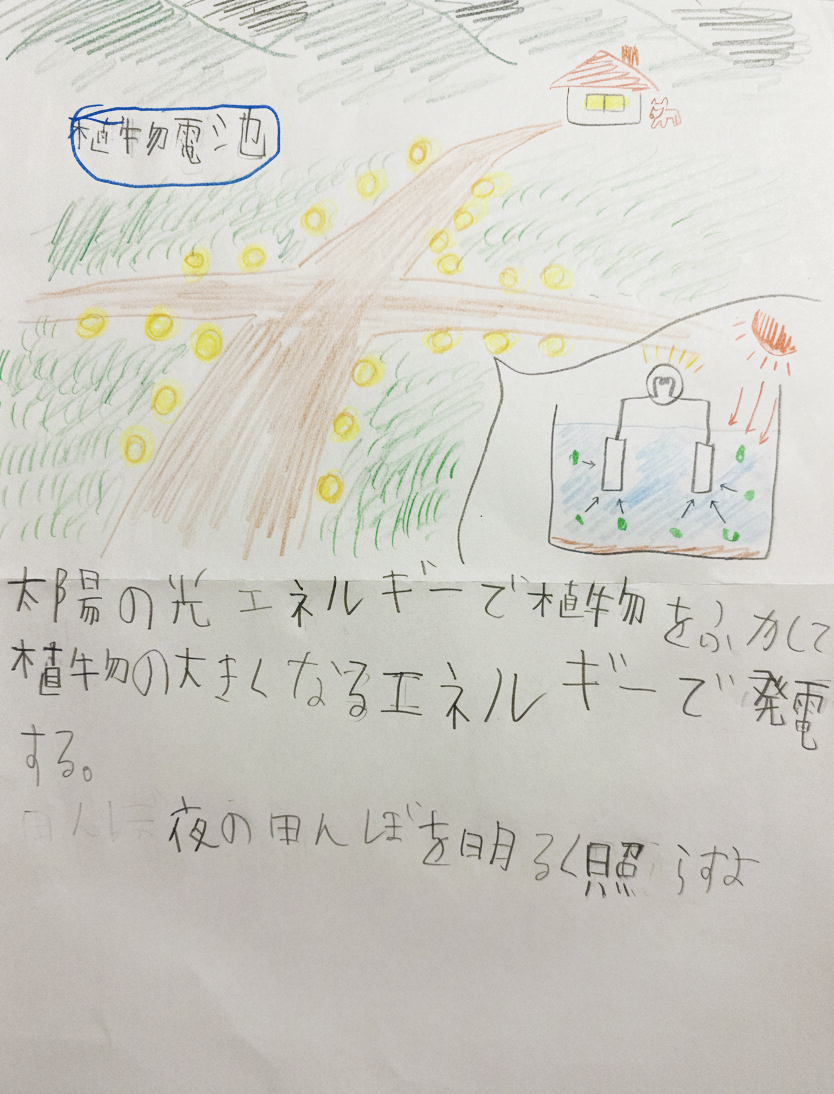 植物電池
太陽の光エネルギーで植物をふかして
植物の大きくなるエネルギーで発電
する。
夜の田んぼを明るく照らすよ